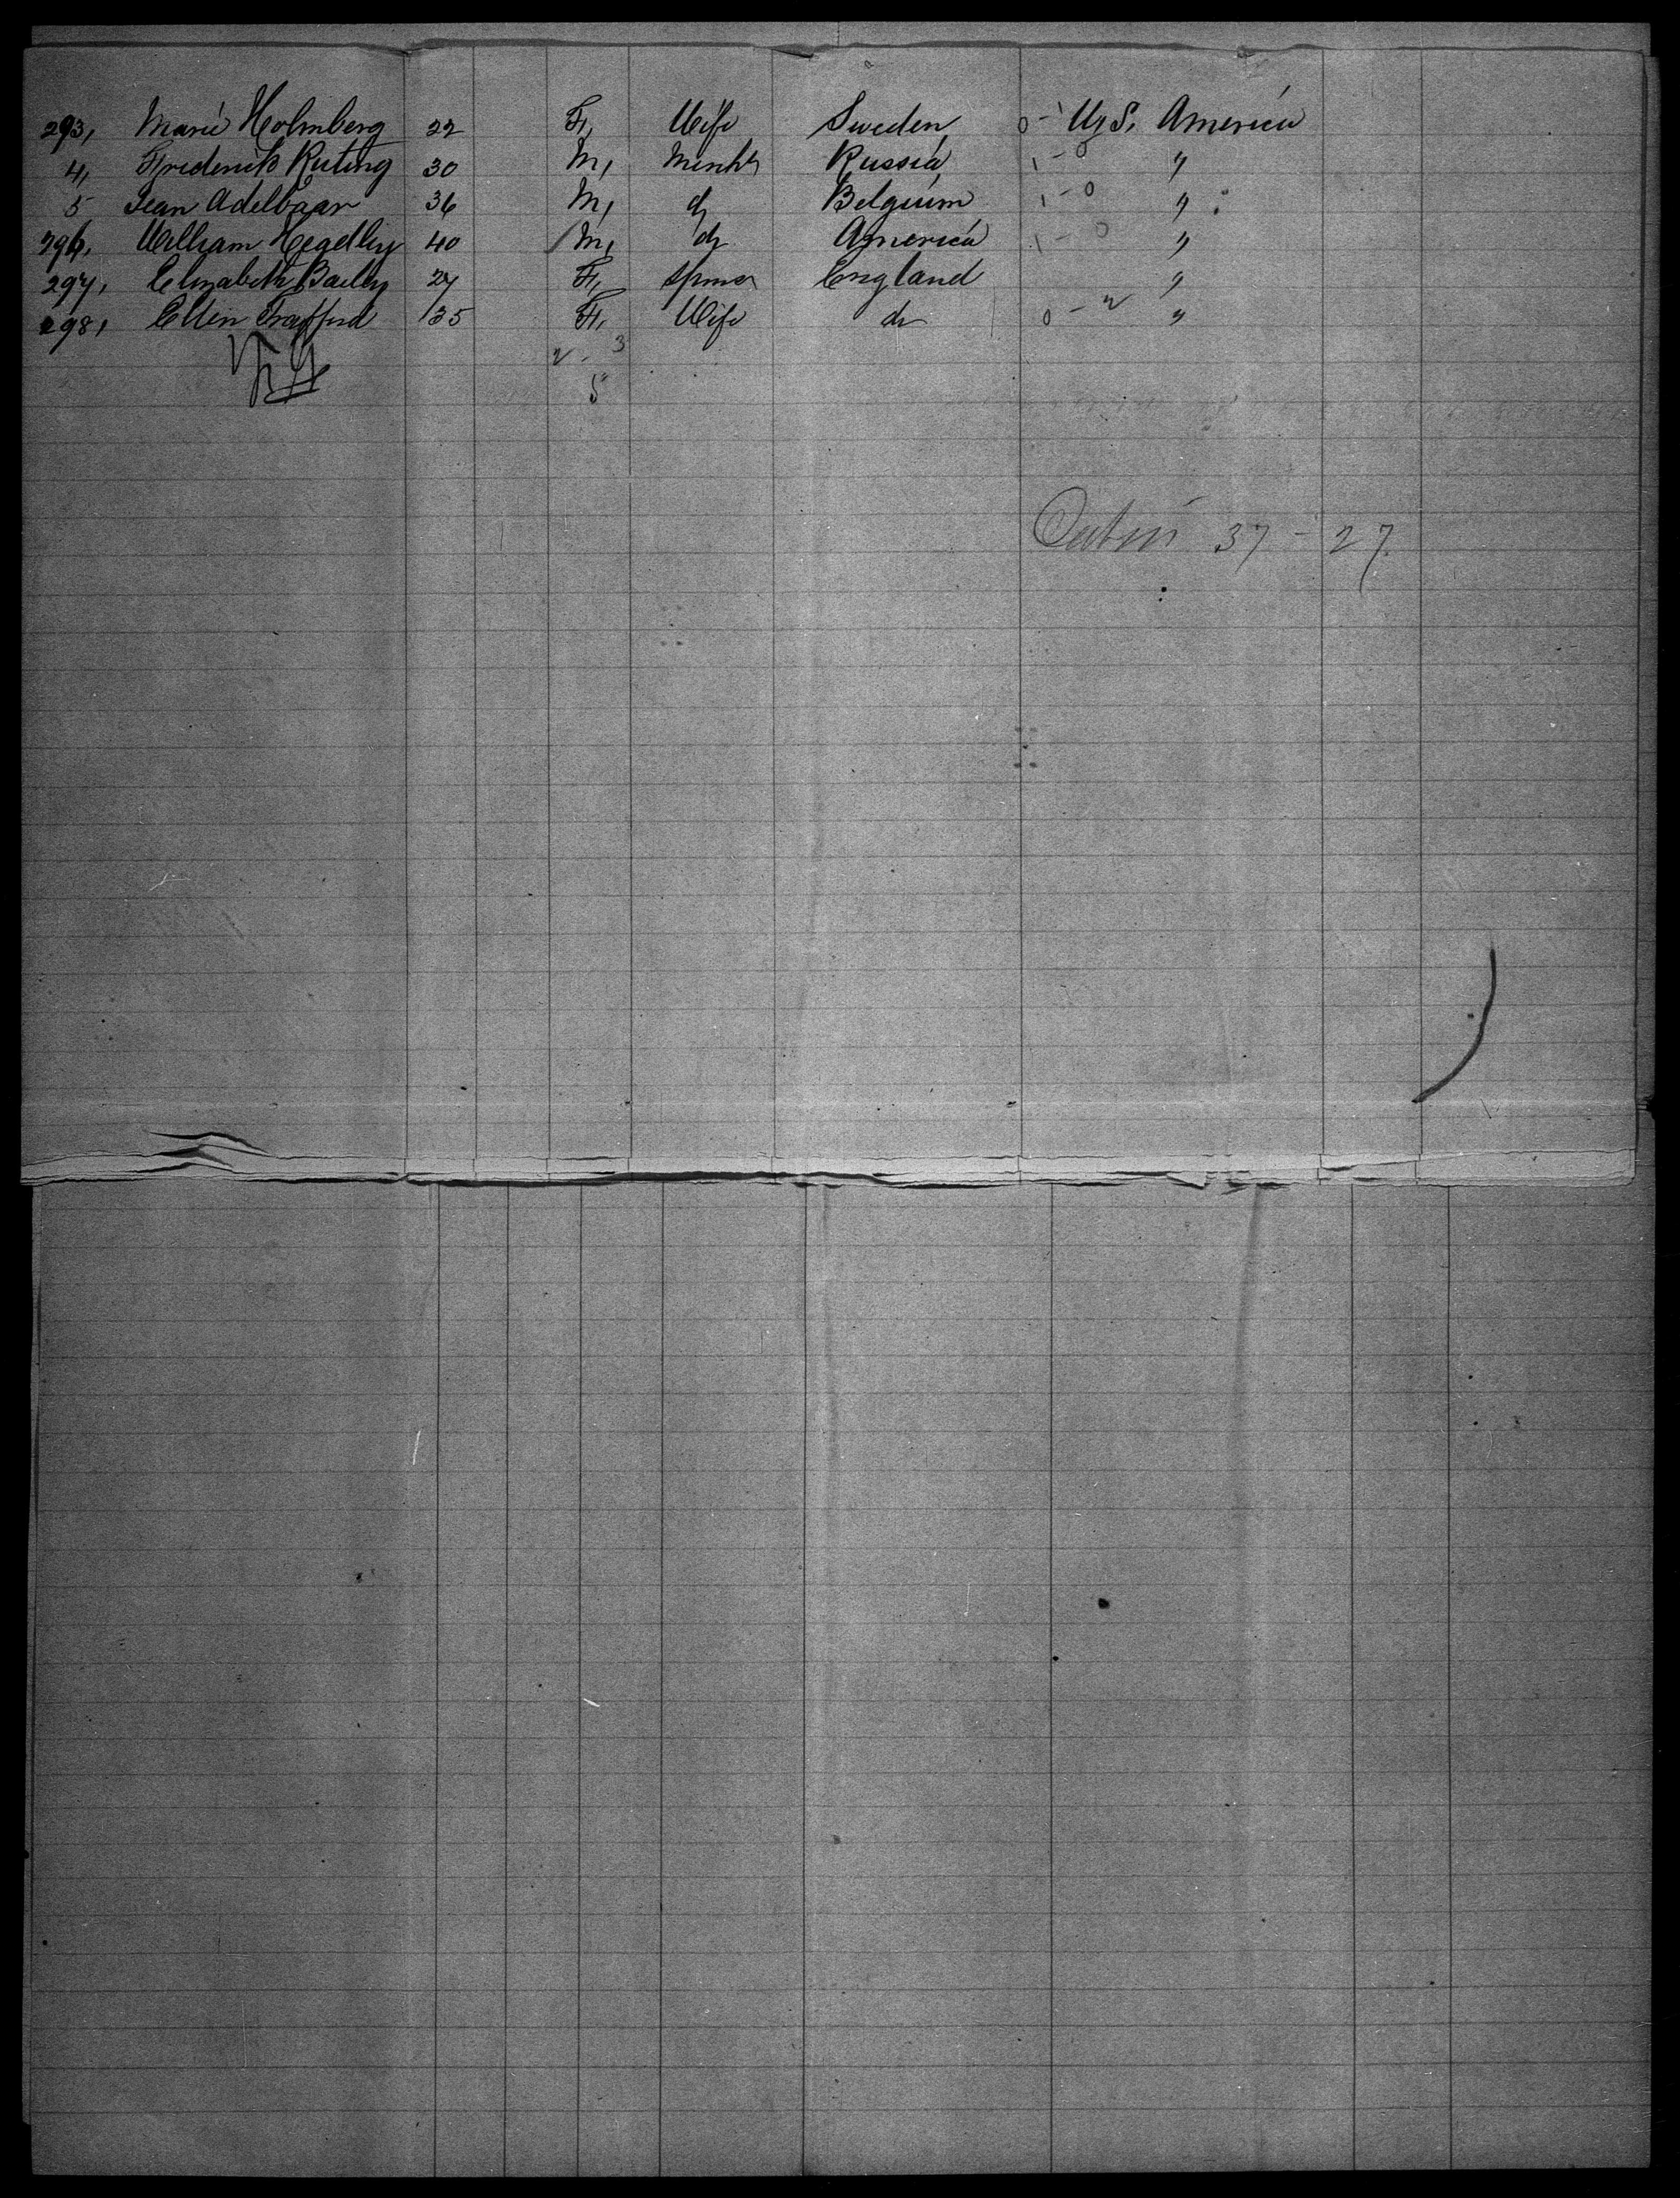 293, Marie Holmberg 22 F, Wife Sweden, 0-1 U,S, America
4, Frederick Ruting 30 M, Mercht Russia, 1-0 "
5 Jean Adelbaar 36 M, do Belgium 1-0 "
296, William Headley 40 M, do America 1-0 "
297, Elizabeth Bailey 27 F, Spinsr England "
298, Ellen Trafford 35 F, Wife do 0-2 "
2 - 3
5
37 - 27